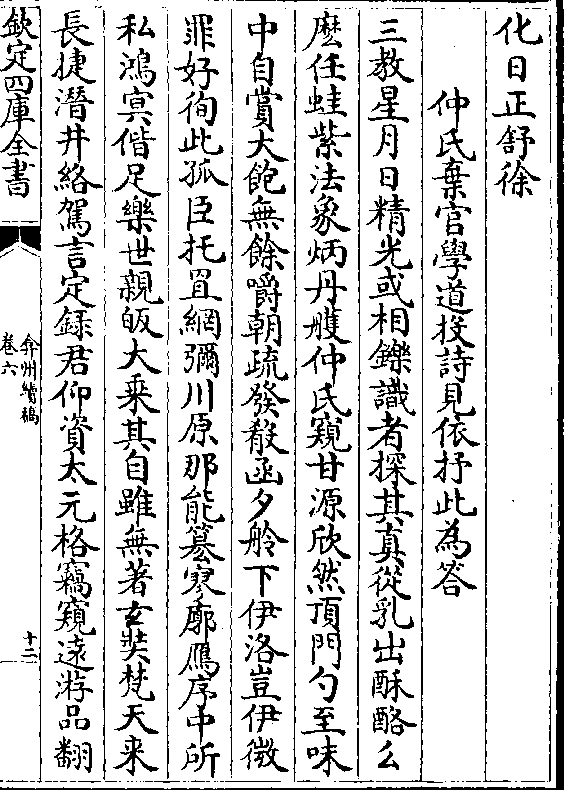 化日正舒徐
仲氏棄官學道投詩見依抒此為答
三教星月日精光或相鑠識者探其真從乳出酥酪么
麽任蛙紫法象炳丹雘仲氏窺甘源欣然頂門勺至味
中自賞大飽無餘嚼朝疏發殽函夕舲下伊洛豈伊徴
罪好徇此孤臣托罝網彌川原那能簒寥廓鴈序中所
私鴻冥偕足樂世親皈大乗其自雖無著玄奘梵天来
長捷潛井絡駕言定録君仰資太元格竊窺逺游品翻
欽定四庫全書
弇州續稿
卷六
十二